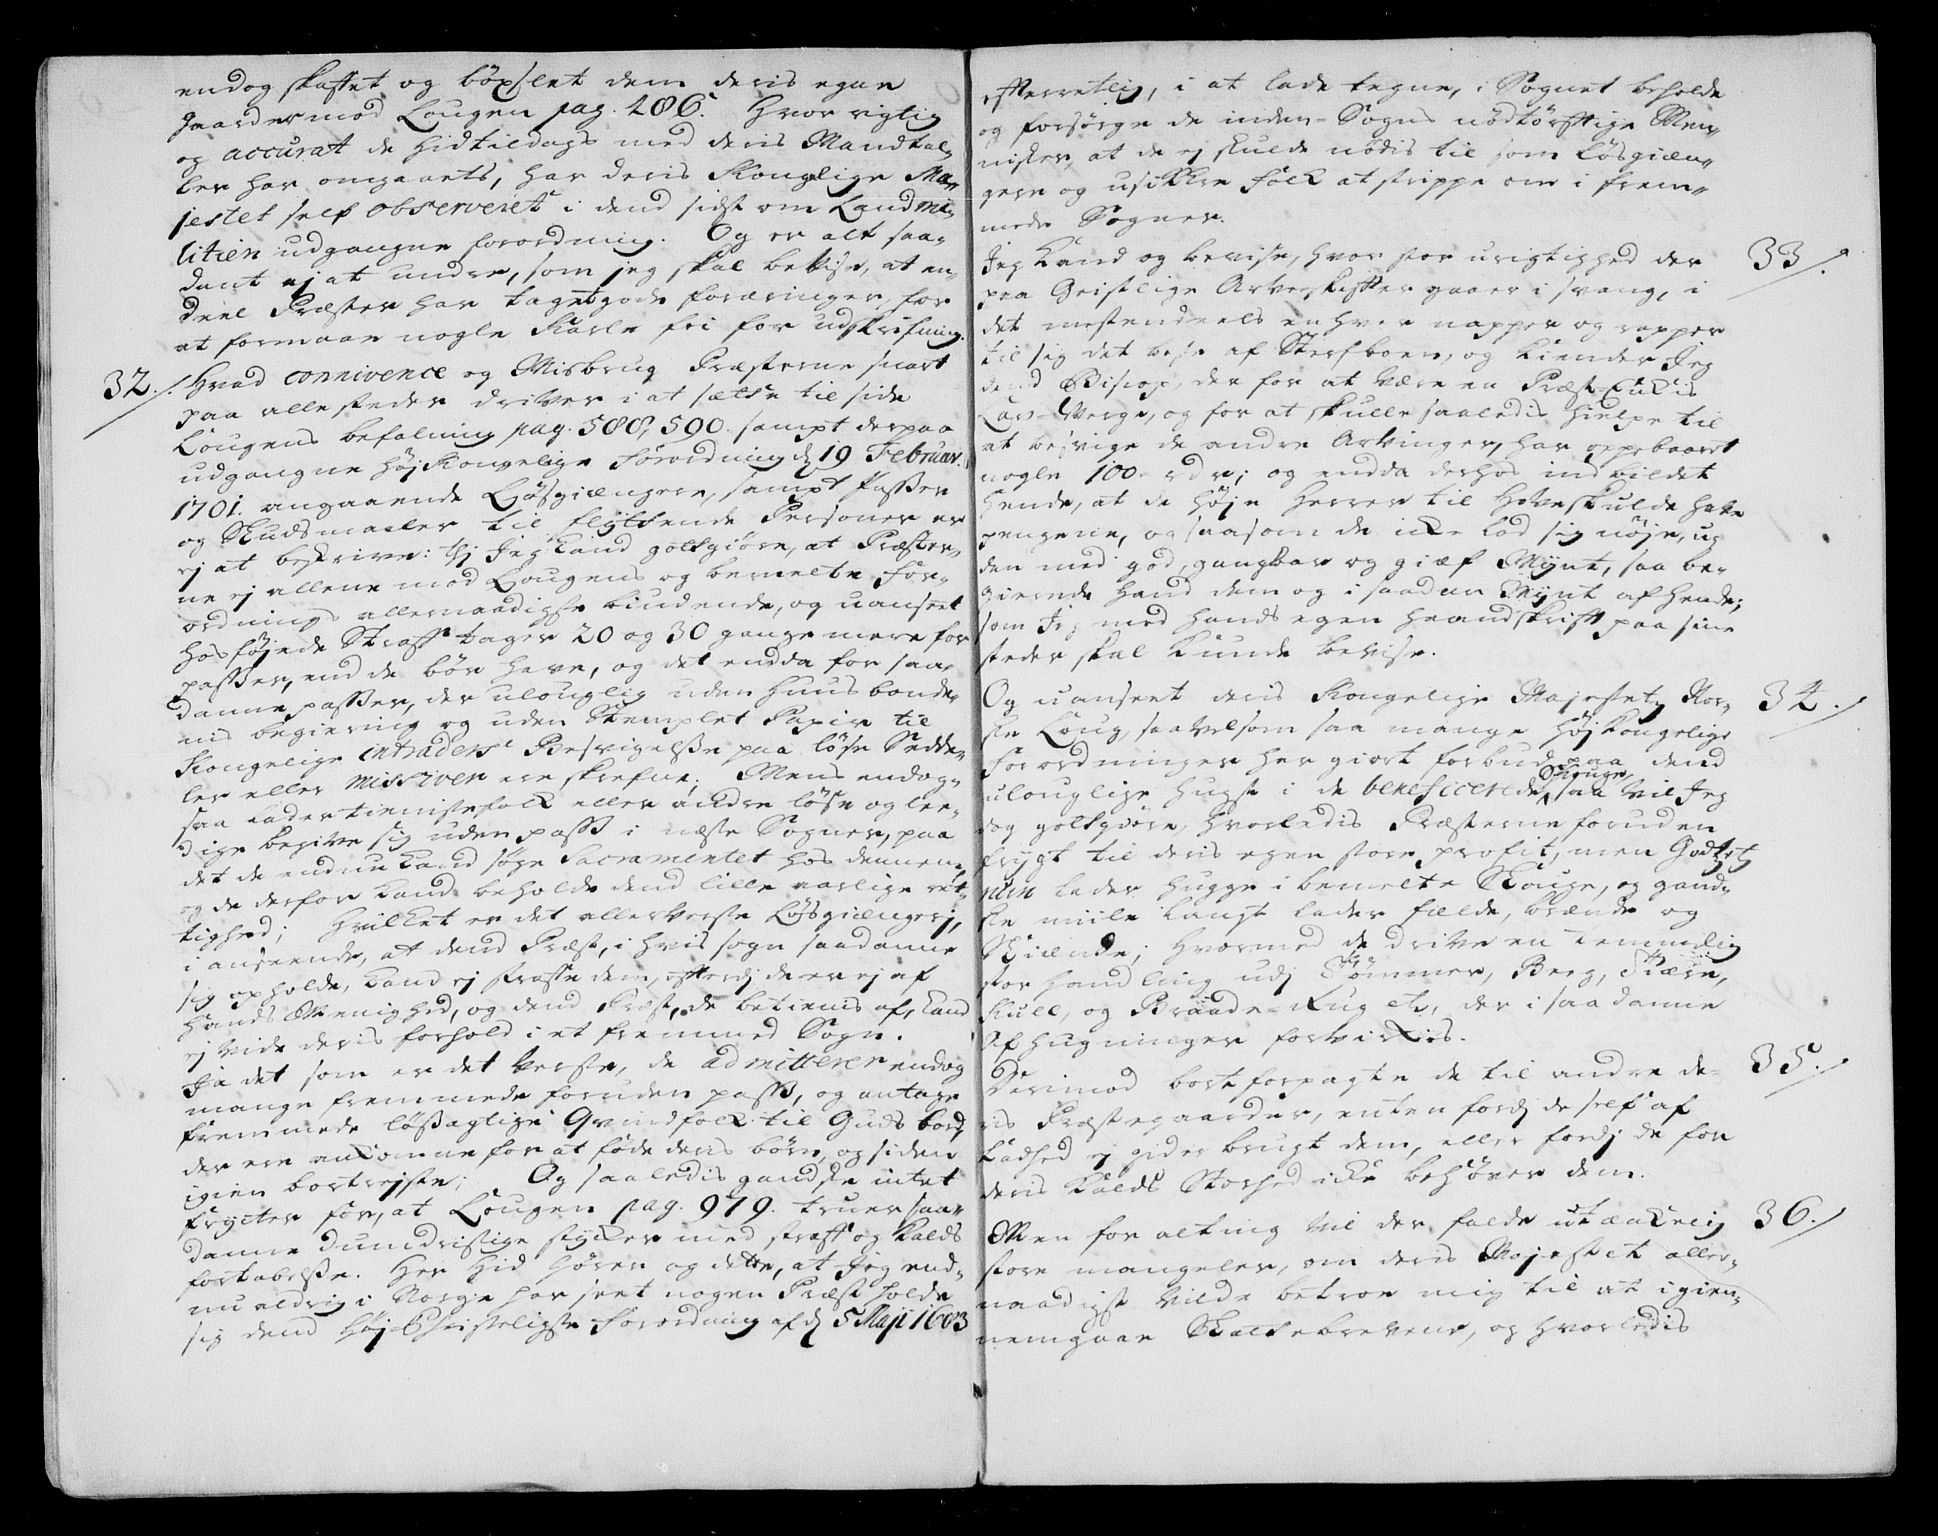 endog skaffet og böxslet dem deris egne
Gaarder mod Lougen pag. 286. Hvor rigtig
og accurat de hidtildags med deris Mandtal-
ler har omgaaets, har deris Kongelige Ma-
jestet self observeret i dend sidst om Landmi-
litien udgangne forordning. Og er alt saa-
dant ej at undre, som jeg skal bevise, at en
deel Præster har taget gode foræringer, for
at formaae nogle Karle fri for udskrifning.
32. Hvad connivence og Misbrug Præsterne snart
paa alle steder driver i at sætte til side
Lougens befalning pag. 580, 590. sampt derpaa
udgangne høj Kongelige Forordning dj 19 Februar.
1701. angaaende Løsgiængere, sampt Passer
og Skudsmaaler til flyttende Personer er
ej at beskrive: thj Jeg kand gotgiøre, at Præster-
ne ej allene mod Lougens og bemelte For-
ordnings allernaadigste biudende, og uanseet
hosføjede Straff tager 20 og 30 gange mere for
passer, end de bör have, og det endda for saa-
danne passer, der ulouglig uden Huusbonde-
nis begiering og uden Stemplet Papir til
Kongelige intraders Besvigelsse paa løse Sedde-
ler eller missiver ere skrefne; Mens endog-
saa lader tienistefolk eller andre løse og lee-
dige begive sig uden pass i næste Sogner, paa
det de endnu kand søge Sacramentet hos dennem
og de derfor kand beholde dend lille aarlige ret-
tighed; Hvilket er det allerverste Løsgiængerj,
i anseende, at dend Præst, i hvis sogn saadanne
sig opholde, kand ej straffe dem, efterdj de er ej af
hands Menighed, og dend Præst, de betienis af, kand
ej vide deris forhold i et fremmed Sogn.
Ja det som er det verste, de admitterer endog
mange fremmede foruden pass, og antage
fremmede løssagtige Qvindfolk til Guds bord,
der ere ankomne for at føde deris børn, og siden
igien bortrejste; Og saaledis gandske intet
frycter for, at Lougen pag. 979. truer saa-
danne dumdristige stycker med straff og Kalds
fortabelsse. Her hid hörer og dette, at Jeg end-
nu aldrig i Norge har seet nogen Præst holde
sig dend Høj-Christeligste Forordning af dj 5 Maji 1683
efterretlig, i at lade tegne, i Sognet beholde
og forsörge de inden-Sogns nödtörfftige Men-
nisker, at de ej skulde nödis til som Løsgiæn-
gere og usikkre Folk at strippe om i frem-
mede Sogner.
33. Jeg kand og bevise, hvor stor urigtighed der
paa Geistlige Arveskiffter gaaer i svang, i
det mestendeels enhver napper og rapper
til sig det beste af Sterfboen, og kiender Jeg
dend Biscop, der for at være en Præst-Enkis
Lav-Verge, og for at skulle saaledis hielpe til
at besvige de andre Arvinger, har oppebaaret
nogle 100 rdr; og endda derhos indbildet
hende, at de høje Herrer til Hove skulde have
pengene, og saasom de icke lod sig nöje, u-
den med god, gangbar og giæf Mynt, saa be-
gierede hand dem og i saadan Mynt af hende;
som Jeg med hands egen haandskrifft paa sine
steder skal kunde bevise.
34. Og uanseet deris Kongelige Majestets Nor-
ske Loug, saavelsom saa mange Høj Kongelige
Forordninger her giort forbud paa dend
ulouglige hugst i de beneficerede Skouge, saa vil Jeg
dog gotgiøre, hvorledis Præsterne foruden
frygt til deris egen store profit, men Godtzets
ruin lader hugge i bemelte Skouge, og gand-
ske miile langt lader fælde, brænde og
Skiænde; hvormed de drive en temmelig
stor handling udj Tömmer, Beeg, Tiære,
Kull, og Braade-Rug etc, der i saadanne
Ophugninger forvirkis.
35. Derimod bortforpagte de til andre de-
ris Præstegaarder, enten fordj de self af
Ladhed ej gider brugt dem, eller fordj de for
deris Kalds Storhed icke behöver dem.
36. Men for alting vil der falde utænkelig
store mangeler, om deris Majestet aller-
naadigst vilde betroe mig til at igien-
nemgaae Skattebrevene, og hvorledis